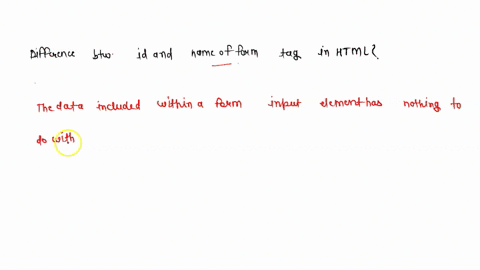 Difference btw id and name of form tag in HTML?
The data included within a form input element has nothing to
do with